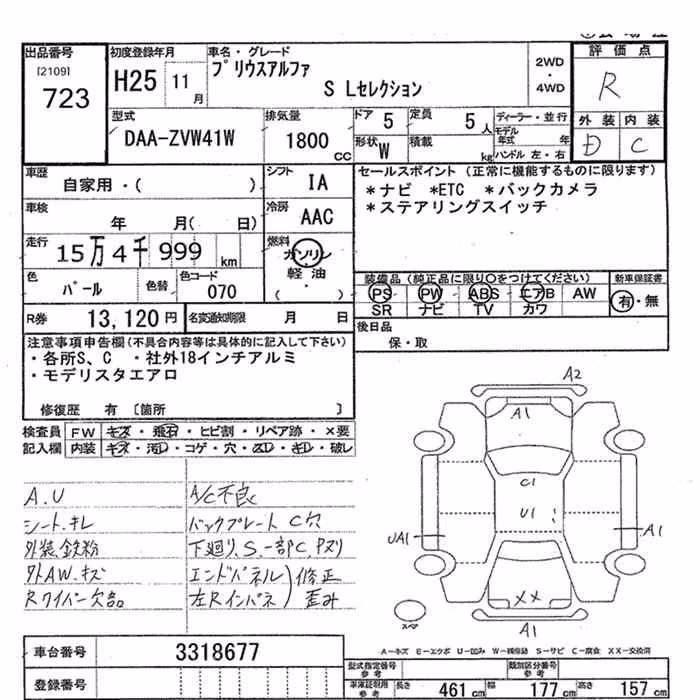 出品番号
[2109]
723
初度登録年月
H25 11月
車名・グレード
プリウスアルファ
S Lセレクション
2WD
・
4WD
評価点
R
外装 内装
D C
型式
DAA-ZVW41W
排気量
1800 cc
ドア 5
定員 5人
形状 W
積載 kg
ディーラー・並行
モデル年式 年
ハンドル 左・右
車歴
自家用・( )
シフト
IA
セールスポイント (正常に機能するものに限ります)
*ナビ *ETC *バックカメラ
*ステアリングスイッチ
車検
年 月( 日)
冷房
AAC
走行
15万4千999 km
燃料
ガソリン
軽・油
( )
色
パール
色替
色コード
070
装備品 (純正品に限り○をつけてください)
PS PW ABS エアB AW
SR ナビ TV カワ
新車保証書
有・無
R券 13,120円
名変通知期限 月 日
後日品
保・取
注意事項申告欄(不具合内容等は具体的に記入して下さい)
・各所S、C ・社外18インチアルミ
・モデリスタエアロ
修復歴 有 〔箇所 〕
検査員記入欄
FW キズ・飛石・ヒビ割・リペア跡・×要
内装 キズ・汚D・コゲ・穴・スレ・キレ・破レ
A.U
シート.キレ
外装.鉄粉
外AW.キズ
Rワイパー欠品
A/C不良
バックプレート C穴
下廻り.S.一部C.Pヌリ
エンドパネル
左Rインパネ
修正
歪み
A2
A1
C1
U1
UA1
A1
XX
スペア
A1
A−キズ E−エクボ U−凹み W−補修跡 S−サビ C−腐食 XX−交換済
車台番号 3318677
登録番号
型式指定番号 参考
類別区分番号 参考
車庫証明用 参考
長さ 461 cm
幅 177 cm
高さ 157 cm